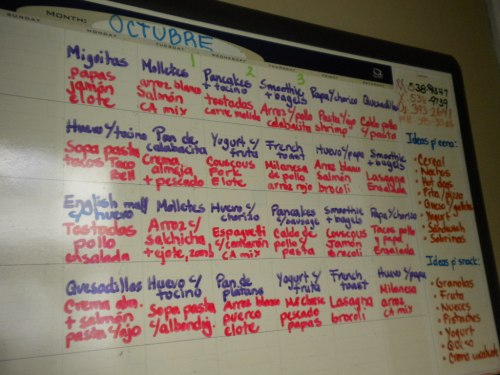 MONTH: OCTUBRE
SUNDAY MONDAY TUESDAY WEDNESDAY THURSDAY FRIDAY
1 2 3
Migaitas
papas
jamón
elote
Molletes
arroz blanco
Salmón
CA mix
Pancakes
+ tocino
tostadas
carne molida
Smoothie
+ bagels
Arroz c/pollo
calabacita
Papa y chorizo
Pasta y/ajo
shrimp
Quesadilla
Caldo pollo
c/pasta
Huevo y/tocino
Sopa pasta
tacos
Taco
Bell
Pan de
calabacita
Crema
almeja
+ pescado
Yogurt y/
fruta
Couscous
Pork
Elote
French
toast
Milanesa
de pollo
arroz rojo
Huevo y/papa
Arroz blanco
Salmón
brocoli
Smoothie
+ bagels
Lasagna
Ensalada
English muff
c/huevo
Tostadas
pollo
ensalada
Molletes
Arroz c/
salchicha
+ ejote, zanh
Huevo c/
chorizo
Espagueti
c/camarón
CA mix
Pancakes
c/sausage
Caldo de
pollo y/
pasta
Smoothie
+ bagels
Couscous
Jamón
brocoli
Papa y/chorizo
Tacos pollo
y papa
Ensalada
Quesadillas
Crema abn.
+ salmón
pasta y/ajo
Huevo c/
tocino
Sopa pasta
c/albondig.
Pan de
platano
Arroz blanco
puerco
elote
Yogurt y/
fruta
pescado
papas
French
toast
Lasagna
brocoli
Huevo y/papa
Milanesa
arroz
CA mix
Ideas p'cena:
• Cereal
• Nachos
• Hot dogs
• Pita/pizza
• Yogurt
• Sandwich
• Sobrinas
Ideas p'snack:
• Granolas
• Fruta
• Nueces
• Pistaches
• Yogurt
• Queso